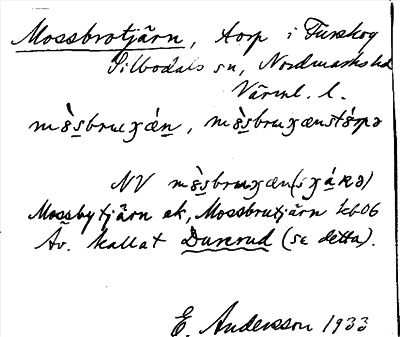 Mossbrotjärn, torp i Turskog
Silbodals sn, Nordmarks hd
Värml. l.
mòsbruχæn, mòsbruχænstórpə
NV mòsbruχæn(sχákə)
Mossbytjärn ek, Mossbrutjärn kb06
Äv. kallat Durerud (se detta).
E. Andersson 1933